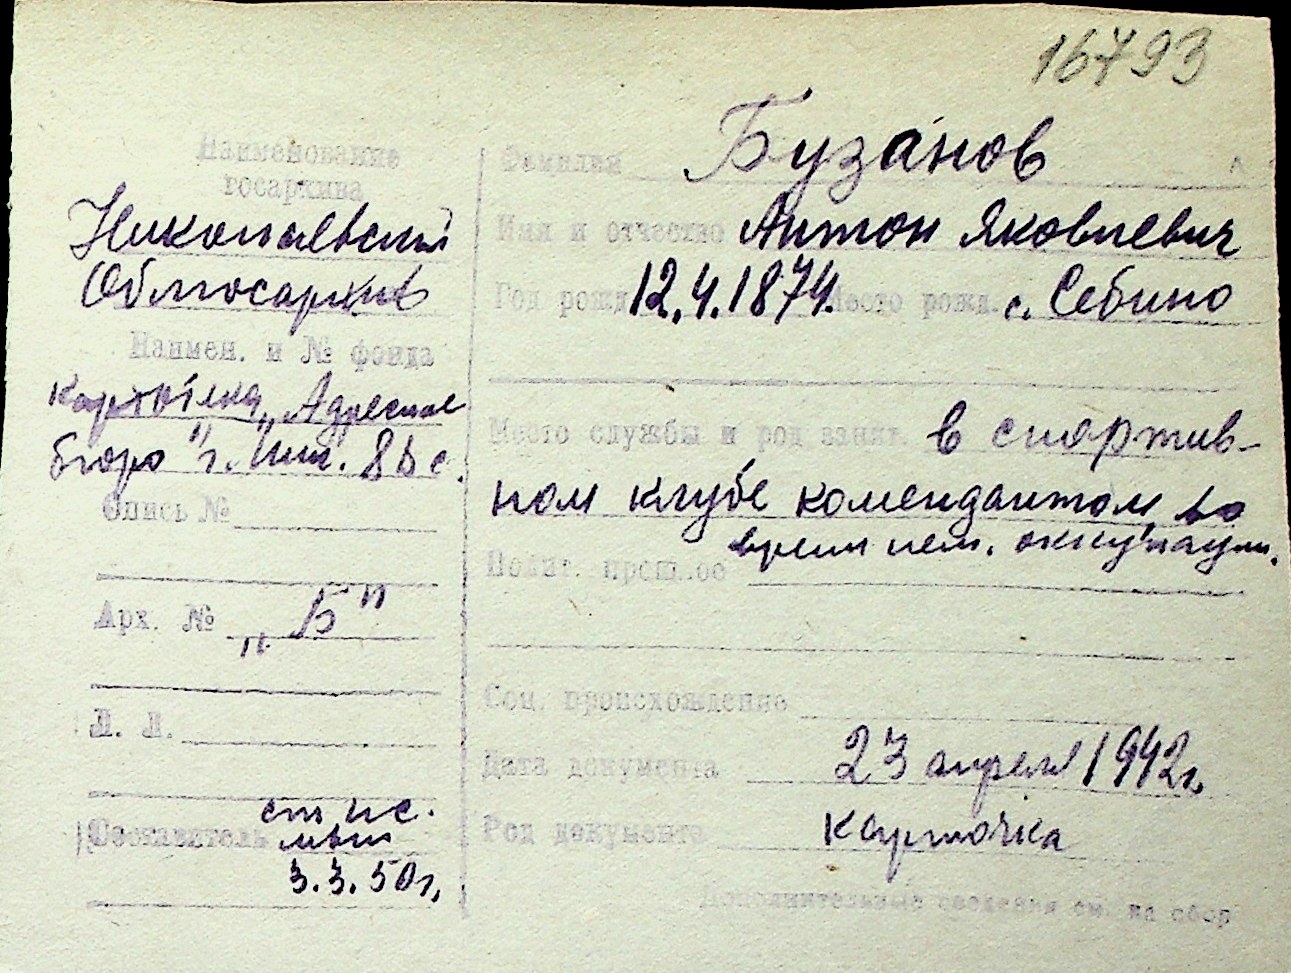 16793
Наименование
госархива
Николаевский
Облгосархив
Наимен. и № фонда
картотека „Адресное
бюро" г. Ник.
Опись №
Арх. № „Б"
Л. Л.
Составитель
3.3.50г.
Фамилия Бузанов
Имя и отчество Антон Яковлевич
Год рожд. 12.4.1874. Место рожд. с. Себино
Место службы и род занят. в спортив-
ном клубе комендантом, во
время нем. оккупации.
Полит. прошлое
Соц. происхождение
Дата документа 23 апреля 1942г.
Род документа карточка
Дополнительные сведения см. на обор